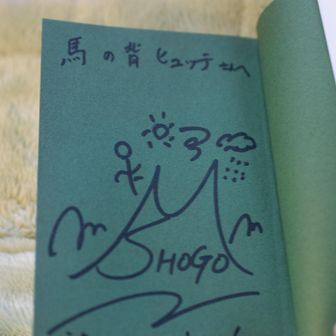 馬の背ヒュッテさんへ
SHOGO